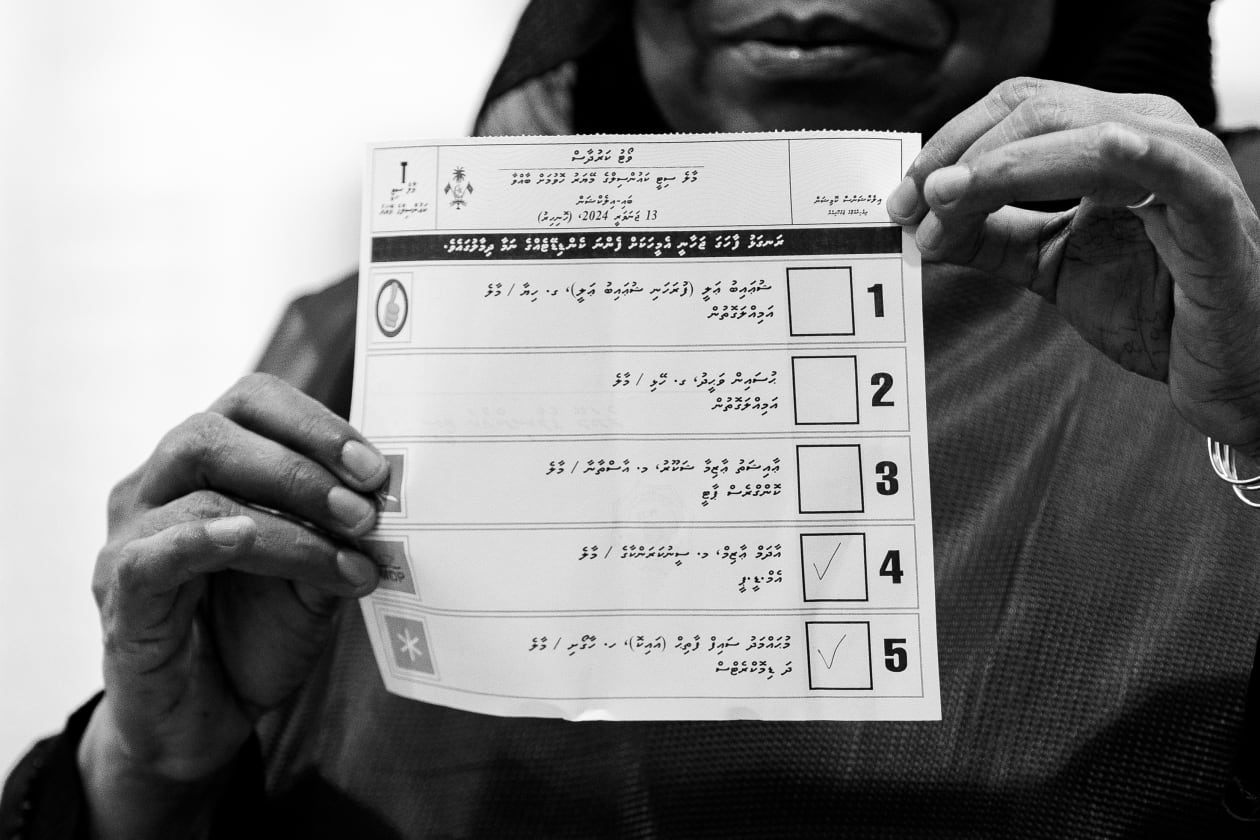 ވޯޓު ކަރުދާސް
މާލެ ސިޓީ ކައުންސިލްގެ މޭޔަރު ހޮވުމަށް ބާއްވާ
ބައި-އިލެކްޝަން
13 ޖަނަވަރީ 2024، (ހޮނިހިރު)
އިލެކްޝަންސް ކޮމިޝަން
މާލެ ސިޓީ
ރަނގަޅު ފާހަގަ ޖަހާނީ އެމީހަކަށް ފެންނަ ކެންޑިޑޭޓެއްގެ ނަމާ ދިމާލުގައެވެ.
1
ޝުޢައިބު ޢަލީ (ފުރަހަނި ޝުޢައިބު ޢަލީ)، ގ. ހިޔާ / މާލެ
އަމިއްލަގޮތުން
2
ޙުސައިން ވަޙީދު، ގ. ހޭޅި / މާލެ
އަމިއްލަގޮތުން
3
ޢާއިޝަތު ޢާޒިމާ ޝަކޫރު، މ. އާސްތާނާ / މާލެ
ކޮންގްރެސް ޕާޓީ
4
އާދަމް ޢާޒިމް، މ. ސީނުކަރަންކާގެ / މާލެ
އެމް.ޑީ.ޕީ
MDP
5
މުޙައްމަދު ސައިފް ފާތިޙް (އައިކޮ)، ހ. ހާގޯށި / މާލެ
ދަ ޑިމޮކްރެޓްސް